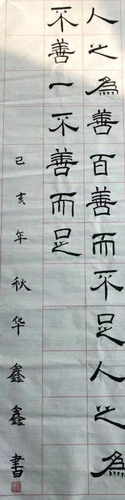 人之为善百善而不足人之为
不善一不善而足
己亥年秋华鑫鑫书